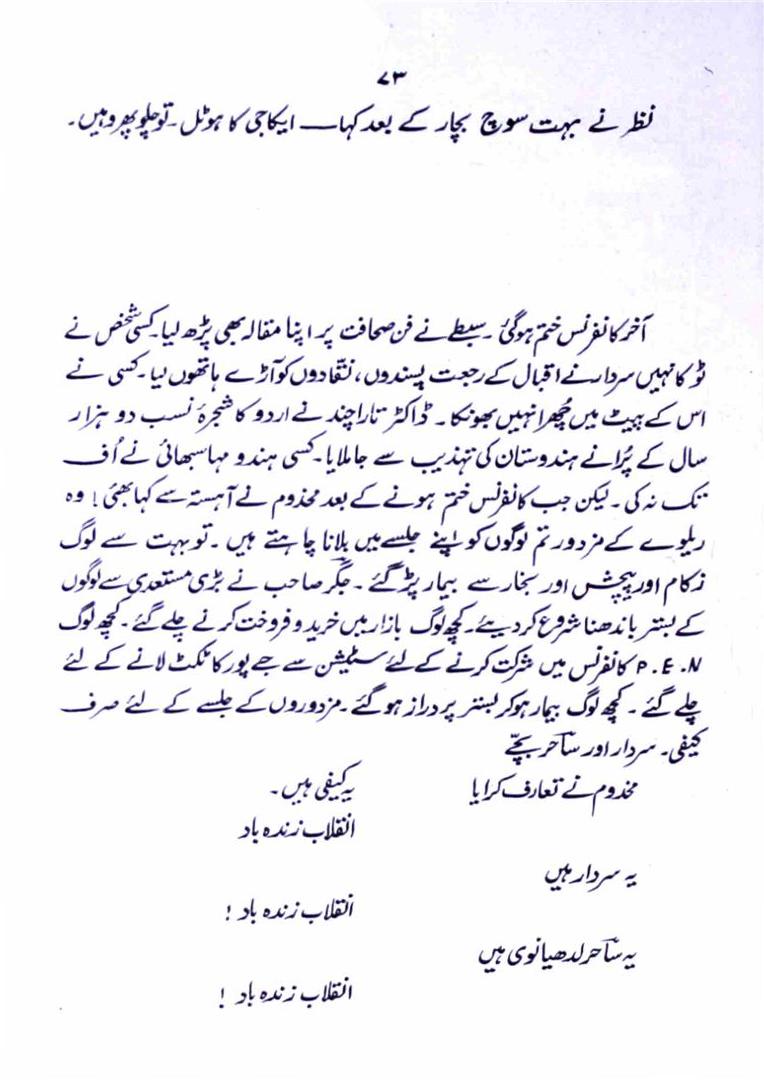 ۷۳
نظر نے بہت سوچ بچار کے بعد کہا — ایکاجی کا ہوٹل۔ تو چلو پھر وہیں۔
آخر کانفرنس ختم ہوگئی۔ سبطے نے فن صحافت پر اپنا مقالہ بھی پڑھ لیا۔ کسی شخص نے
ٹوکا نہیں سردار نے اقبال کے رجعت پسندوں، نقادوں کو آڑے ہاتھوں لیا۔ کسی نے
اس کے پیٹ میں چُھرا نہیں بھونکا۔ ڈاکٹر تارا چند نے اردو کا شجرۂ نسب دو ہزار
سال کے پُرانے ہندوستان کی تہذیب سے جا ملایا۔ کسی ہندو مہا سبھائی نے اُف
تک نہ کی۔ لیکن جب کانفرنس ختم ہونے کے بعد مخدوم نے آہستہ سے کہا بھئی! وہ
ریلوے کے مزدور تم لوگوں کو اپنے جلسے میں بلانا چاہتے ہیں۔ تو بہت سے لوگ
زکام اور پیچش اور بخار سے بیمار پڑ گئے۔ جگر صاحب نے بڑی مستعدی سے لوگوں
کے بستر باندھنا شروع کر دیئے۔ کچھ لوگ بازار میں خرید و فروخت کرنے چلے گئے۔ کچھ لوگ
P.E.N کانفرنس میں شرکت کرنے کے لئے سٹیشن سے جے پور کا ٹکٹ لانے کے لئے
چلے گئے۔ کچھ لوگ بیمار ہو کر بستر پر دراز ہو گئے۔ مزدوروں کے جلسے کے لئے صرف
کیفی۔ سردار اور ساحر بچّے
مخدوم نے تعارف کرایا یہ کیفی ہیں۔
انقلاب زندہ باد
یہ سردار ہیں
انقلاب زندہ باد!
یہ ساحر لدھیانوی ہیں
انقلاب زندہ باد!